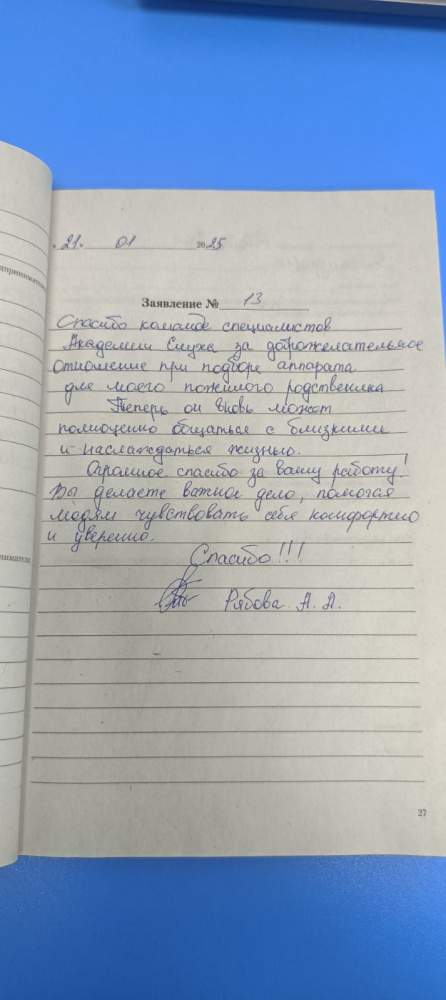 «21» 01 2025
Заявление № 13
Спасибо команде специалистов
Академии Слуха за доброжелательное
отношение при подборе аппарата
для моего пожилого родственника
Теперь он вновь может
полноценно общаться с близкими
и наслаждаться жизнью.
Огромное спасибо за вашу работу!
Вы делаете важное дело, помогая
людям чувствовать себя комфортно
и уверенно.
Спасибо!!!
Рябова А. А.
27